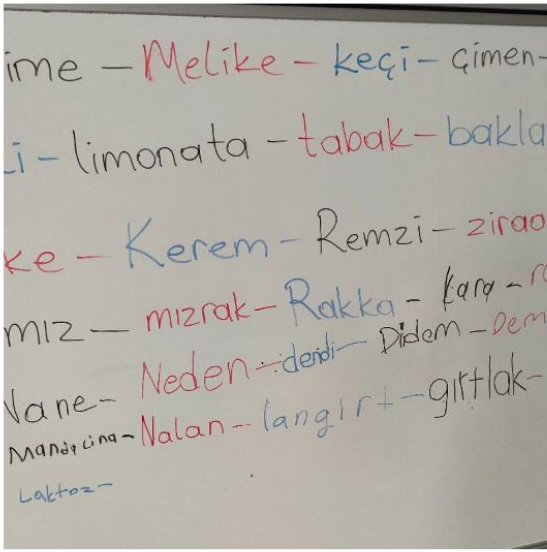 ime - Melike - keçi - çimen -
i - limonata - tabak - bakla
ke - Kerem - Remzi - zirao
mız - mızrak - Rakka - kara - r
Nane - Neden - dendi - Didem - Dem
Mandalina - Nalan - langırt - gırtlak -
Laktoz -